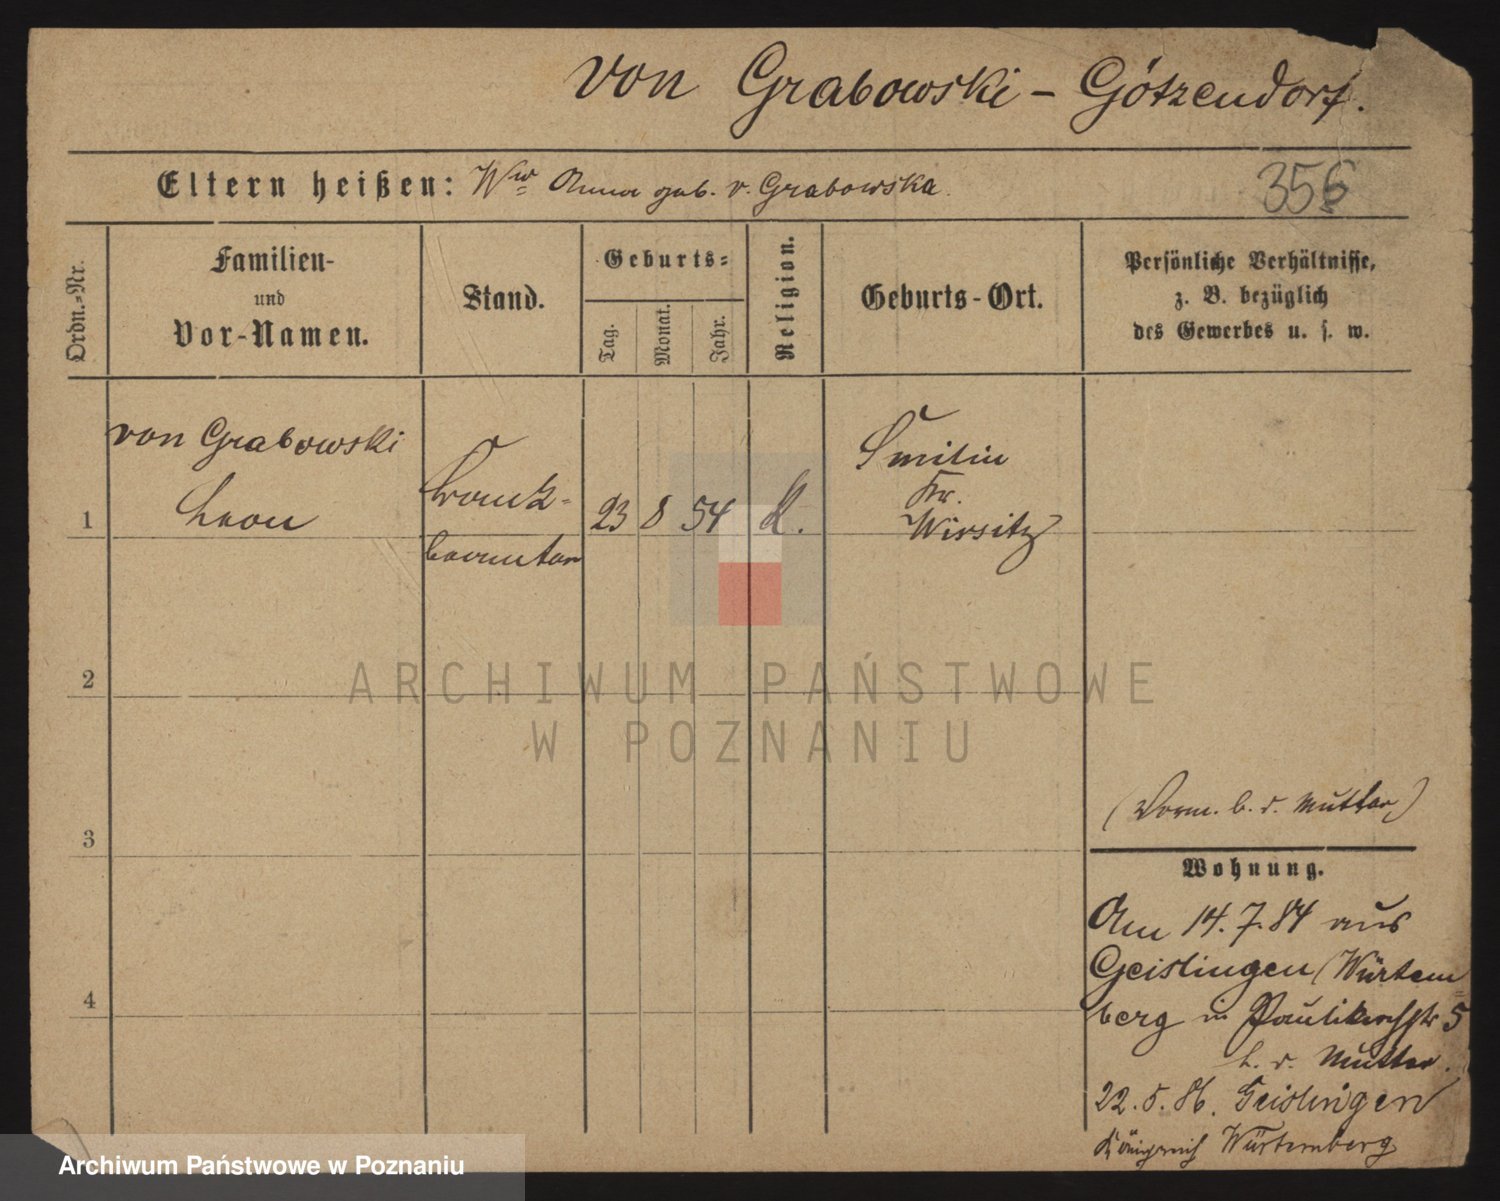 von Grabowski - Götzendorf.
Eltern heißen: Ww Anna geb. v. Grabowska.
356
Ordn.-Nr.
Familien-
und
Vor-Namen.
Stand.
Geburts-
Tag.
Monat.
Jahr.
Religion.
Geburts-Ort.
Persönliche Verhältnisse,
z. B. bezüglich
des Gewerbes u. s. w.
von Grabowski
Leon
1
beamter
23 8 54 K.
Smilin
Kr.
Wirsitz
2
3
4
(Vorm. b. d. Mutter)
Wohnung.
Am 14.7.84 aus
Geislingen (Würtem
berg in Paulikirchstr 5
b. d. Mutter.
22.5.86. Geislingen
Königreich Würtemberg
ARCHIWUM PAŃSTWOWE
W POZNANIU
Archiwum Państwowe w Poznaniu